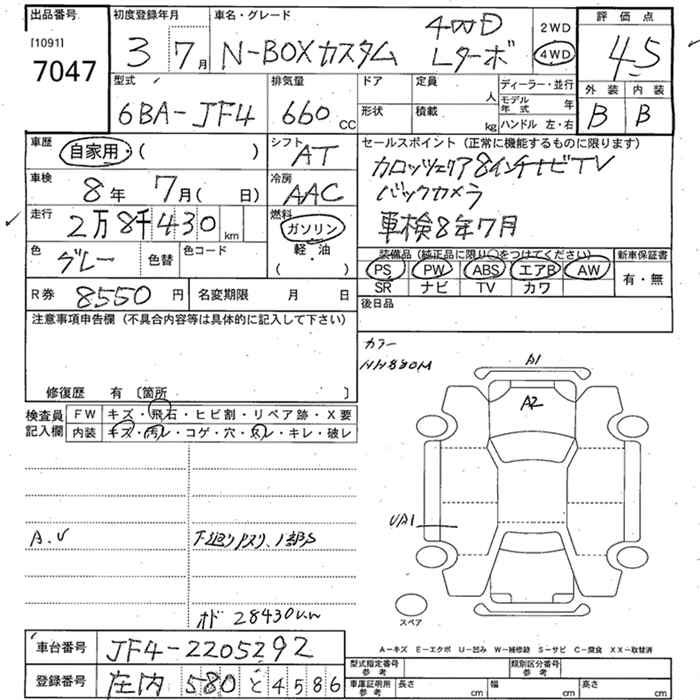 出品番号
[1091]
7047
初度登録年月
3 7月
車名・グレード
N-BOXカスタム 4WD Lターボ
2WD
4WD
評価点
4.5
外装 内装
B B
型式
6BA-JF4
排気量
660 CC
ドア
形状
定員 人
積載 kg
ディーラー・並行
モデル年式 年
ハンドル 左・右
車歴
自家用・( )
シフト
AT
車検
8年 7月( 日)
冷房
AAC
走行
2万8千430km
燃料
ガソリン
軽・油
( )
色
グレー
色替
色コード
R券 8550円
名変期限 月 日
セールスポイント(正常に機能するものに限ります)
カロッツェリア8インチナビTV
バックカメラ
車検8年7月
装備品(純正品に限り○をつけてください)
新車保証書
PS PW ABS エアB AW
SR ナビ TV カワ
有・無
後日品
注意事項申告欄(不具合内容等は具体的に記入して下さい)
修復歴 有〔箇所 〕
検査員記入欄
FW キズ・飛石・ヒビ割・リペア跡・X要
内装 キズ・汚レ・コゲ・穴・スレ・キレ・破レ
A.V
下廻りサスリ、1部S
オド 28430km
カラー
NH880M
A1
A2
UA1
スペア
A-キズ E-エクボ U-凹み W-補修跡 S-サビ C-腐食 XX-取替済
車台番号 JF4-2205292
登録番号 庄内 580 と 4586
型式指定番号 参考
類別区分番号 参考
車庫証明用 参考
長さ cm
幅 cm
高さ cm